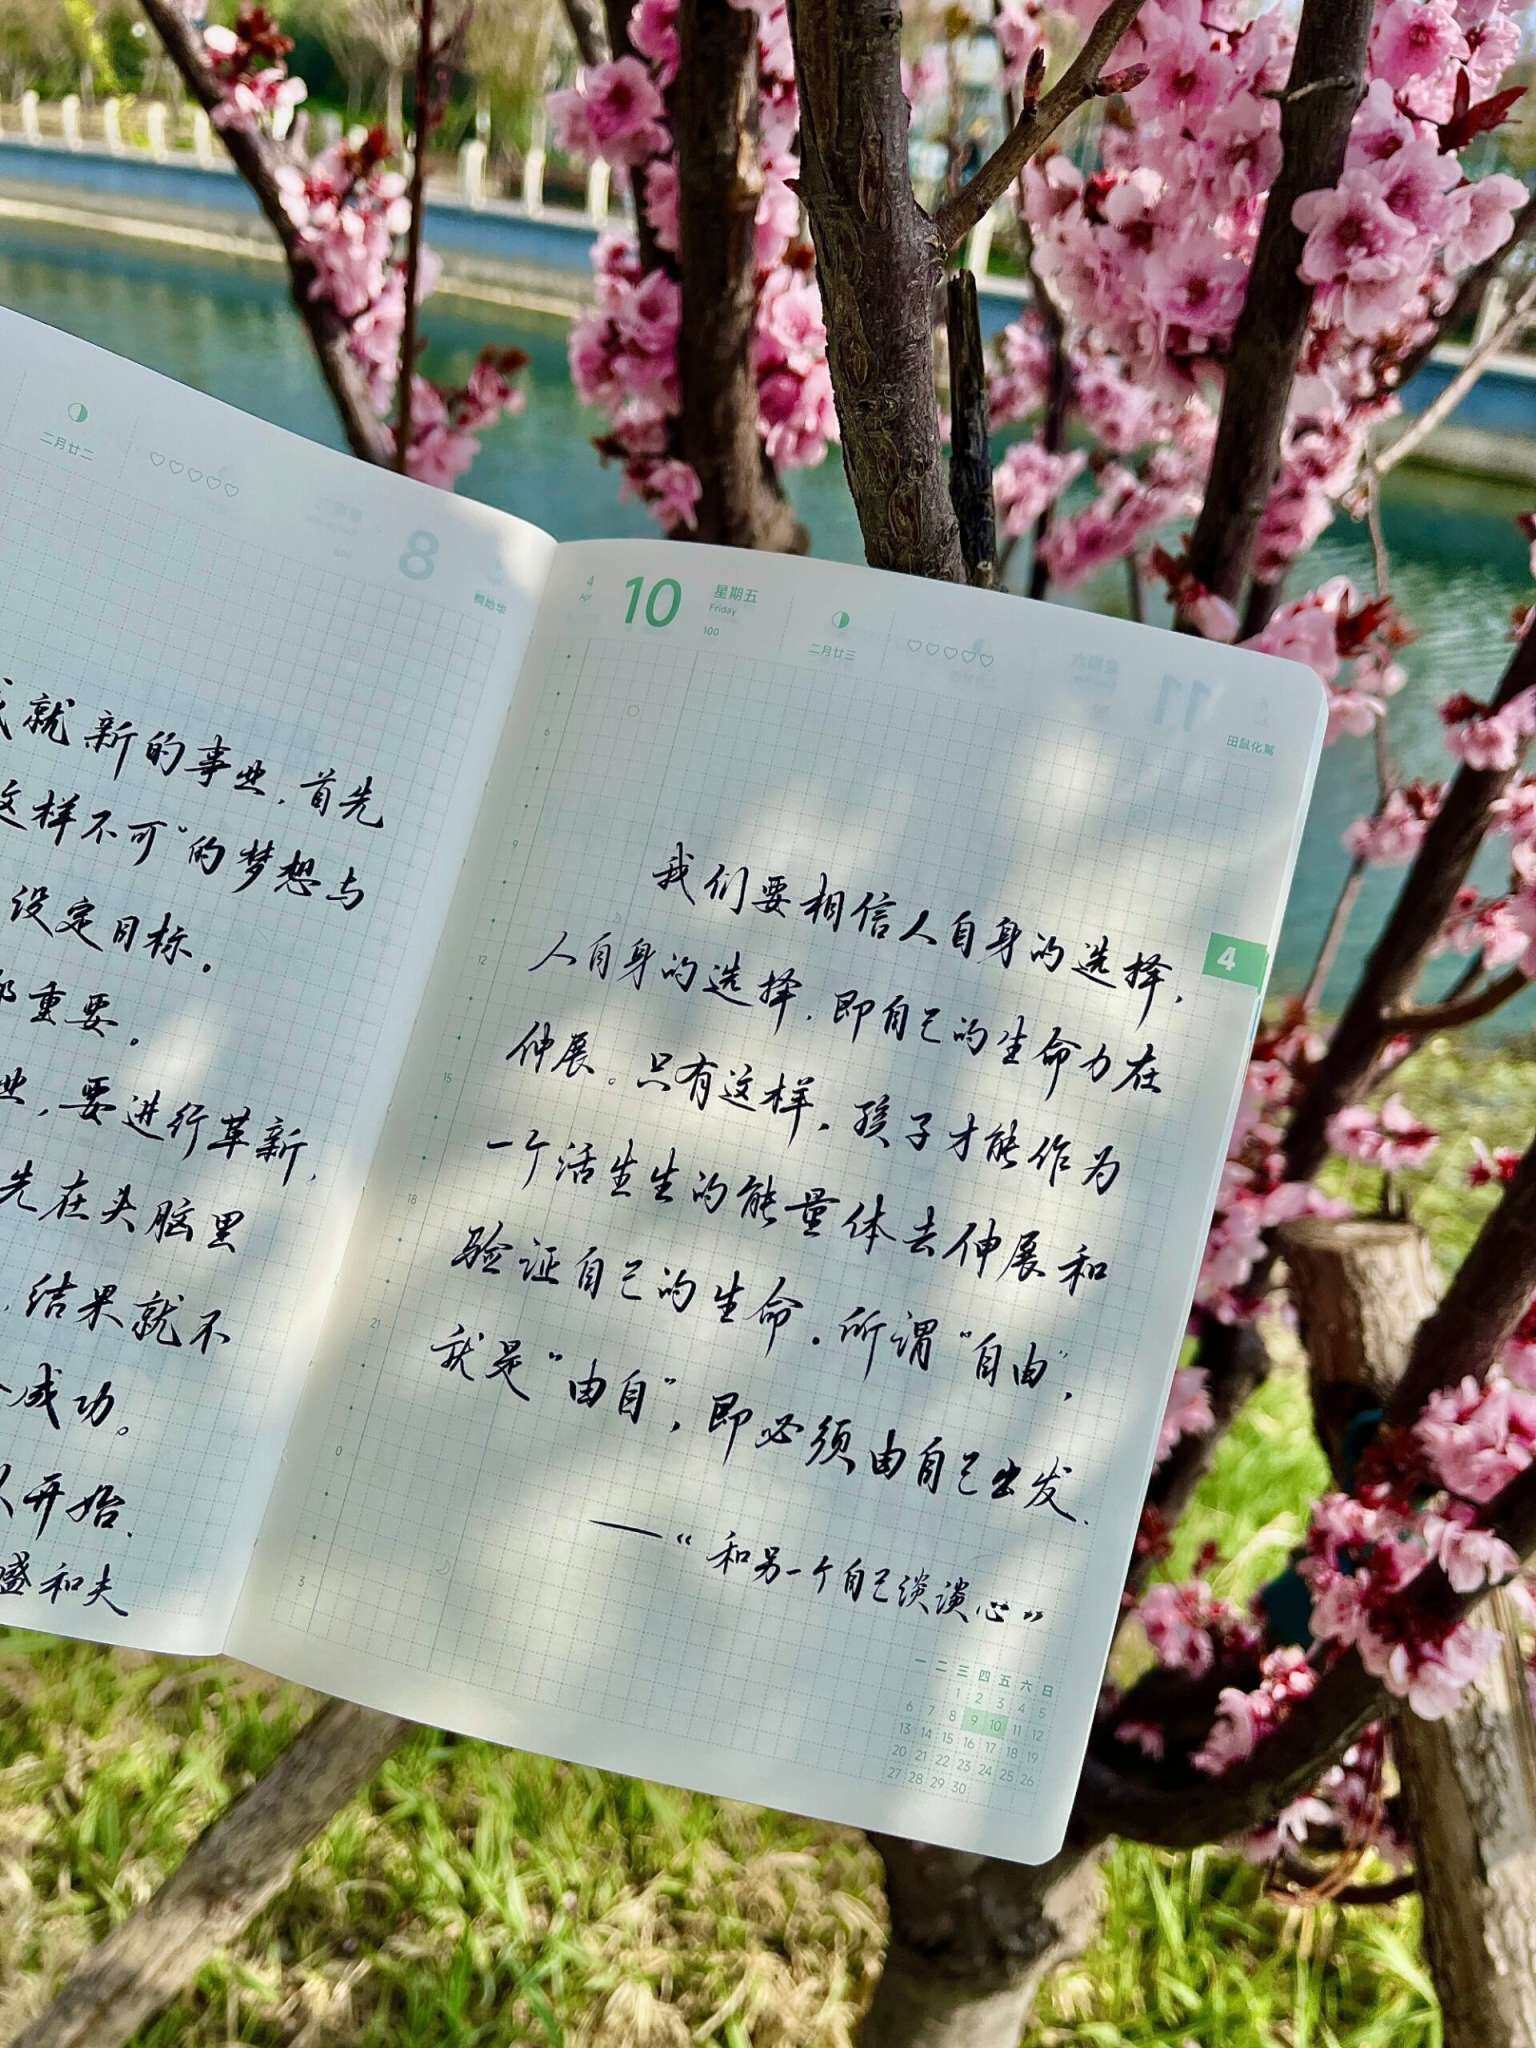 二月廿二
8
桐始华
就新的事业，首先
这样不可”的梦想与
设定目标。
重要。
业，要进行革新，
先在头脑里
结果就不
成功。
开始.
盛和夫
4
Apr
10
星期五
Friday
100
二月廿三
11
田鼠化鴽
6
9
12
15
18
21
0
3
我们要相信人自身的选择，
人自身的选择，即自己的生命力在
伸展。只有这样，孩子才能作为
一个活生生的能量体去伸展和
验证自己的生命。所谓“自由”，
就是“由自”，即必须由自己出发.
——“和另一个自己谈谈心”
4
一 二 三 四 五 六 日
1 2 3 4 5
6 7 8 9 10 11 12
13 14 15 16 17 18 19
20 21 22 23 24 25 26
27 28 29 30